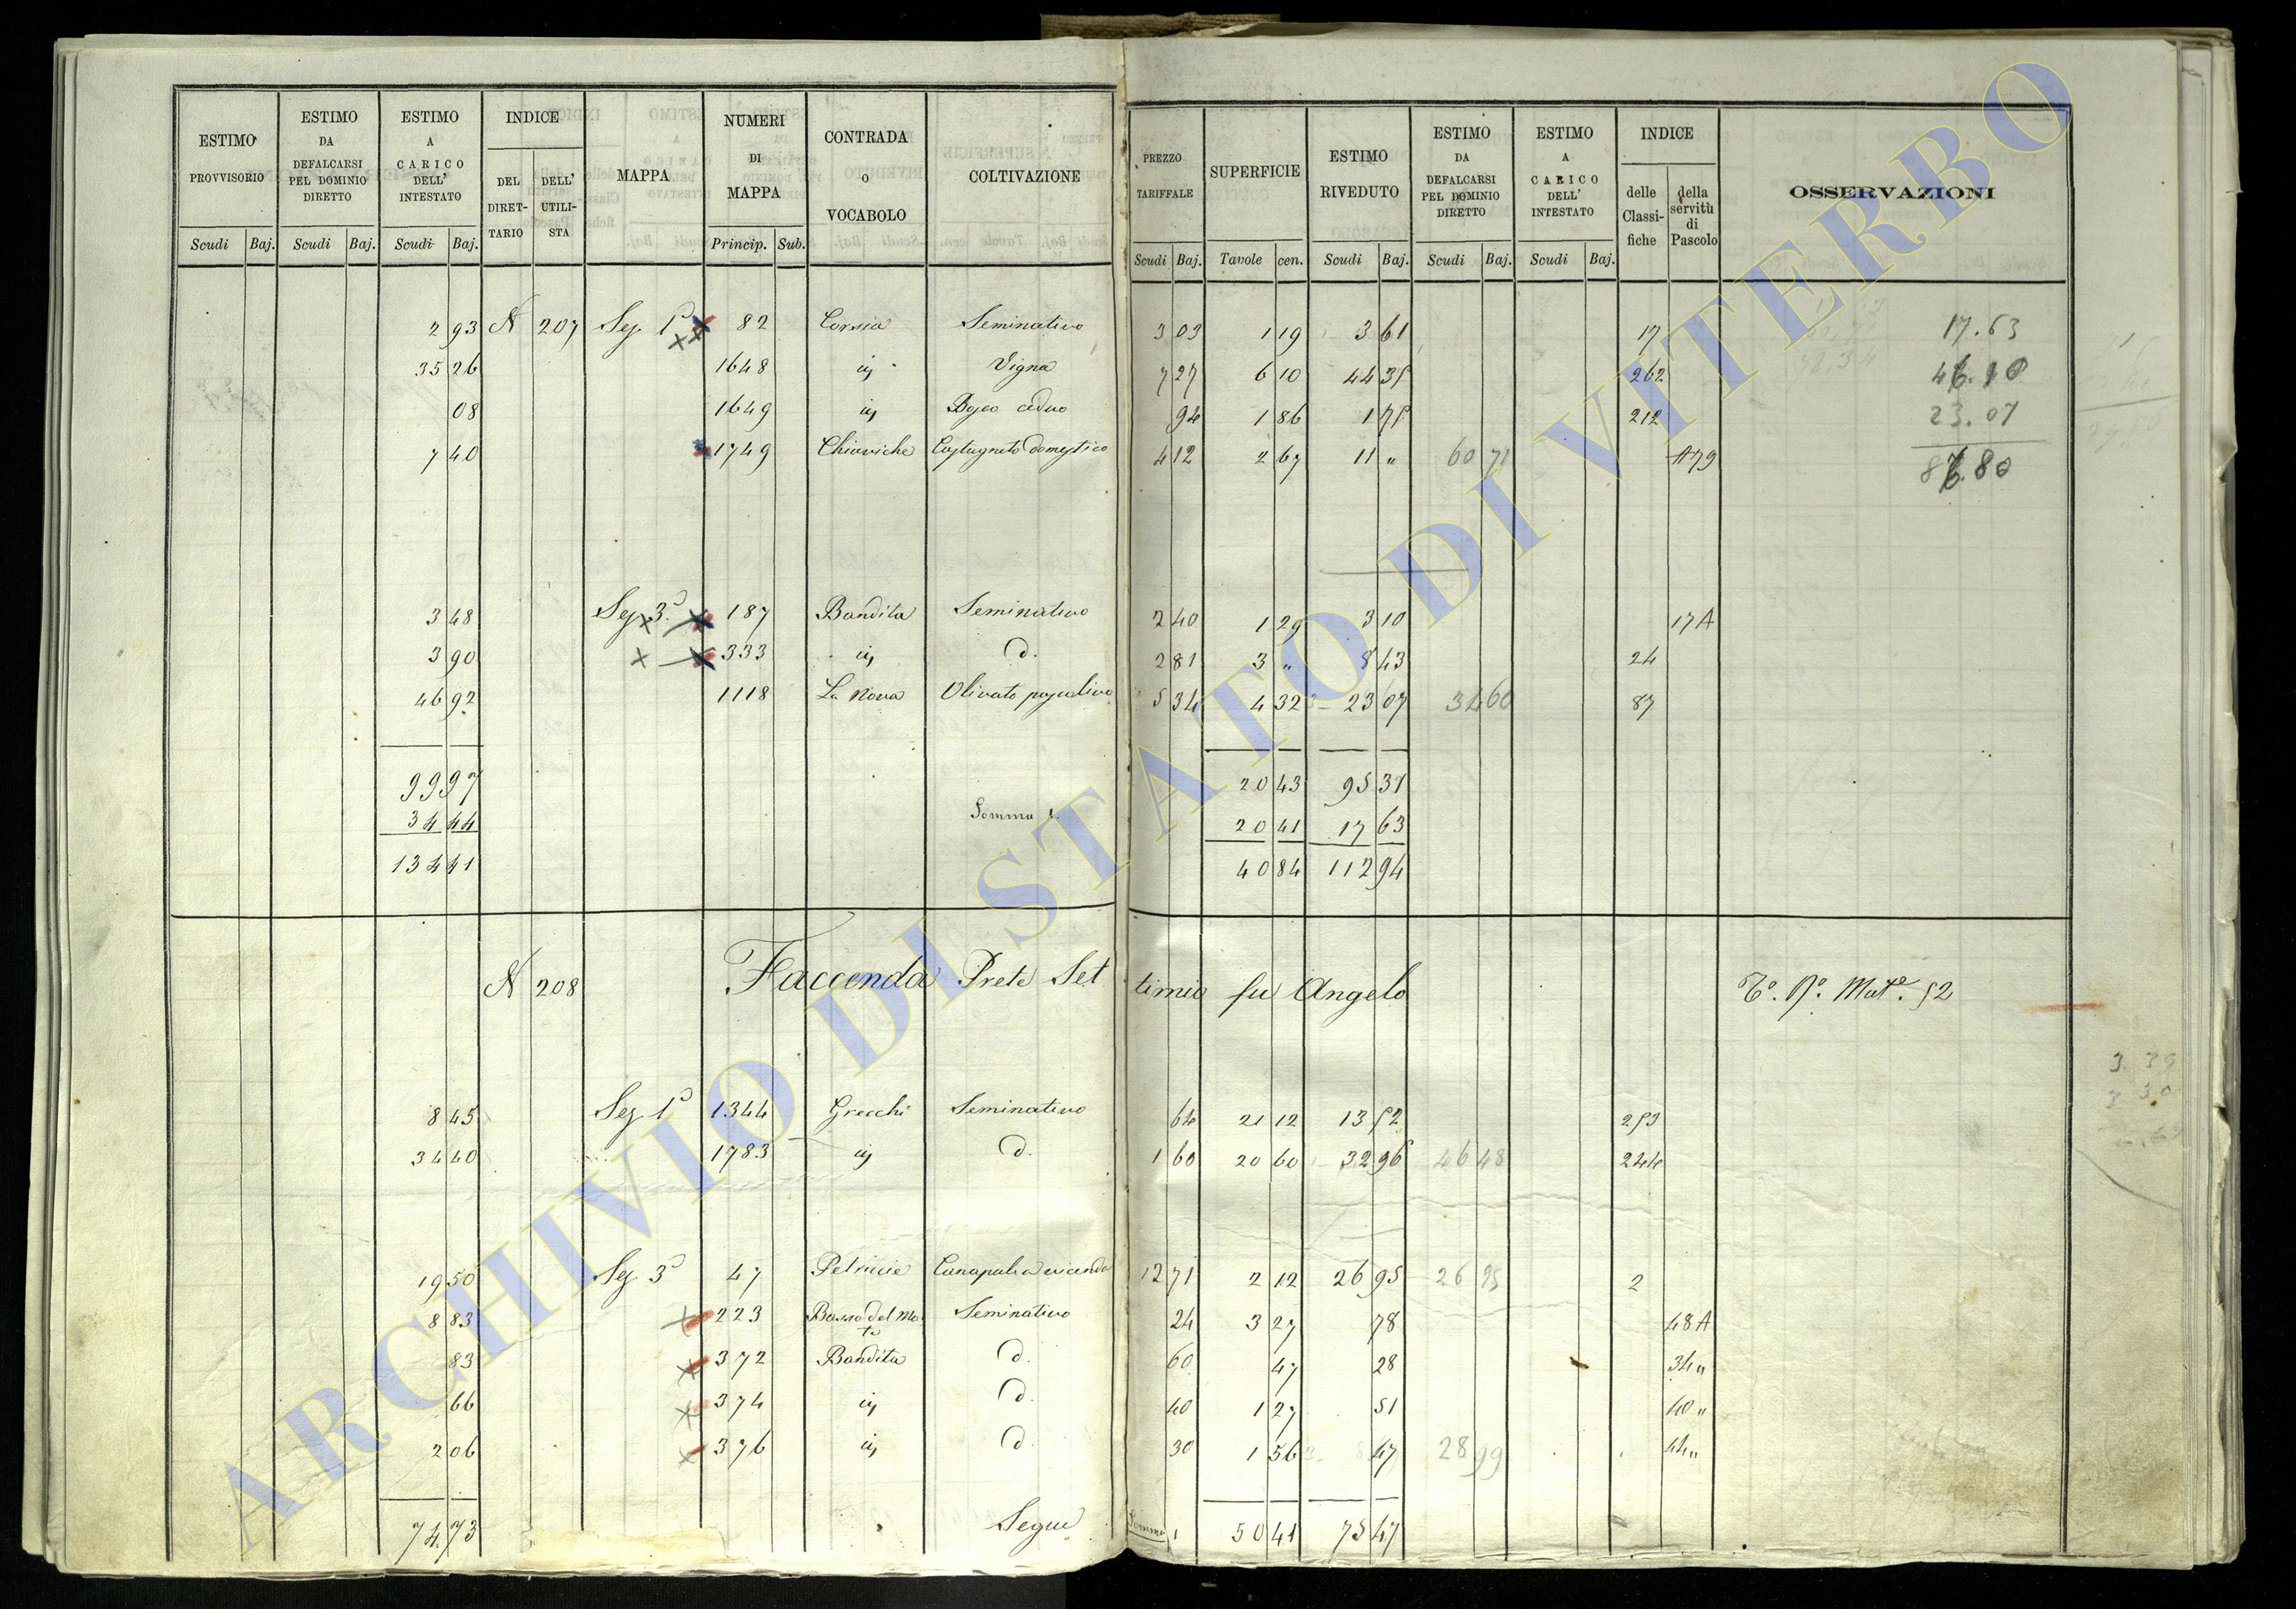 ESTIMO PROVVISORIO | ESTIMO DA DEFALCARSI PEL DOMINIO DIRETTO | ESTIMO A CARICO DELL' INTESTATO | INDICE DEL DIRETTARIO | DELL' UTILISTA | MAPPA | NUMERI DI MAPPA | CONTRADA O VOCABOLO | COLTIVAZIONE | PREZZO TARIFFALE | SUPERFICIE | ESTIMO RIVEDUTO | ESTIMO DA DEFALCARSI PEL DOMINIO DIRETTO | ESTIMO A CARICO DELL' INTESTATO | INDICE delle Classifiche | della servitù di Pascolo | OSSERVAZIONI
Scudi Baj. | Scudi Baj. | Scudi Baj. | Princip. Sub. | Scudi Baj. | Tavole cen. | Scudi Baj. | Scudi Baj. | Scudi Baj.
2 93 N 207 Sez. 1ª 82 Corsia Seminativo 3 03 1 19 3 61 17 17.63
35 26 1648 iȷ Vigna 7 27 6 10 44 35 262 46.10
08 1649 iȷ Bosco ceduo 94 1 86 1 75 212 23.07
7 40 1749 Chiaviche Castagneto domestico 4 12 2 67 11 " 60 71 A79 86.80
3 48 Sez. 3ª 187 Bandita Seminativo 2 40 1 29 3 10 17 A
3 90 333 iȷ d. 2 81 3 " 8 43 24
46 92 1118 La Nova Olivato pascolivo 5 34 4 32 23 07 34 60 87
99 97 20 43 95 31
34 44 Somma 1. 20 41 17 63
134 41 40 84 112 94
N 208 Faccenda Prete Settimio fu Angelo Tº. Rº. Matª. 52
8 45 Sez. 1ª 1344 Grecchi Seminativo 64 21 12 13 52 253
34 40 1783 iȷ d. 1 60 20 60 32 96 46 48 244
19 50 Sez. 3ª 47 Petricie Canapula a vicenda 12 71 2 12 26 95 26 95 2
8 83 223 Seminativo 24 3 27 78 48 A
83 372 Bandita d. 60 47 28 34 "
66 374 iȷ d. 40 1 27 51 40 "
2 06 376 iȷ d. 30 1 56 47 28 99 44 "
74 73 Segue Somma 1 50 41 75 47
ARCHIVIO DI STATO DI VITERBO